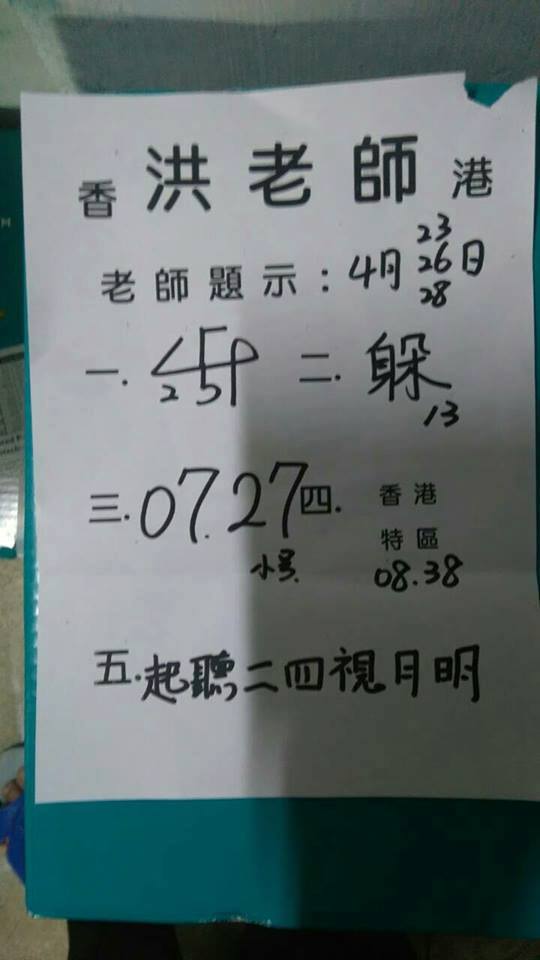 香 洪老師 港
老師題示：4月 23 26 28 日
一. 25 二. 躲 13
三. 07. 27 小号. 四. 香港特區 08.38
五. 起聽二四視月明